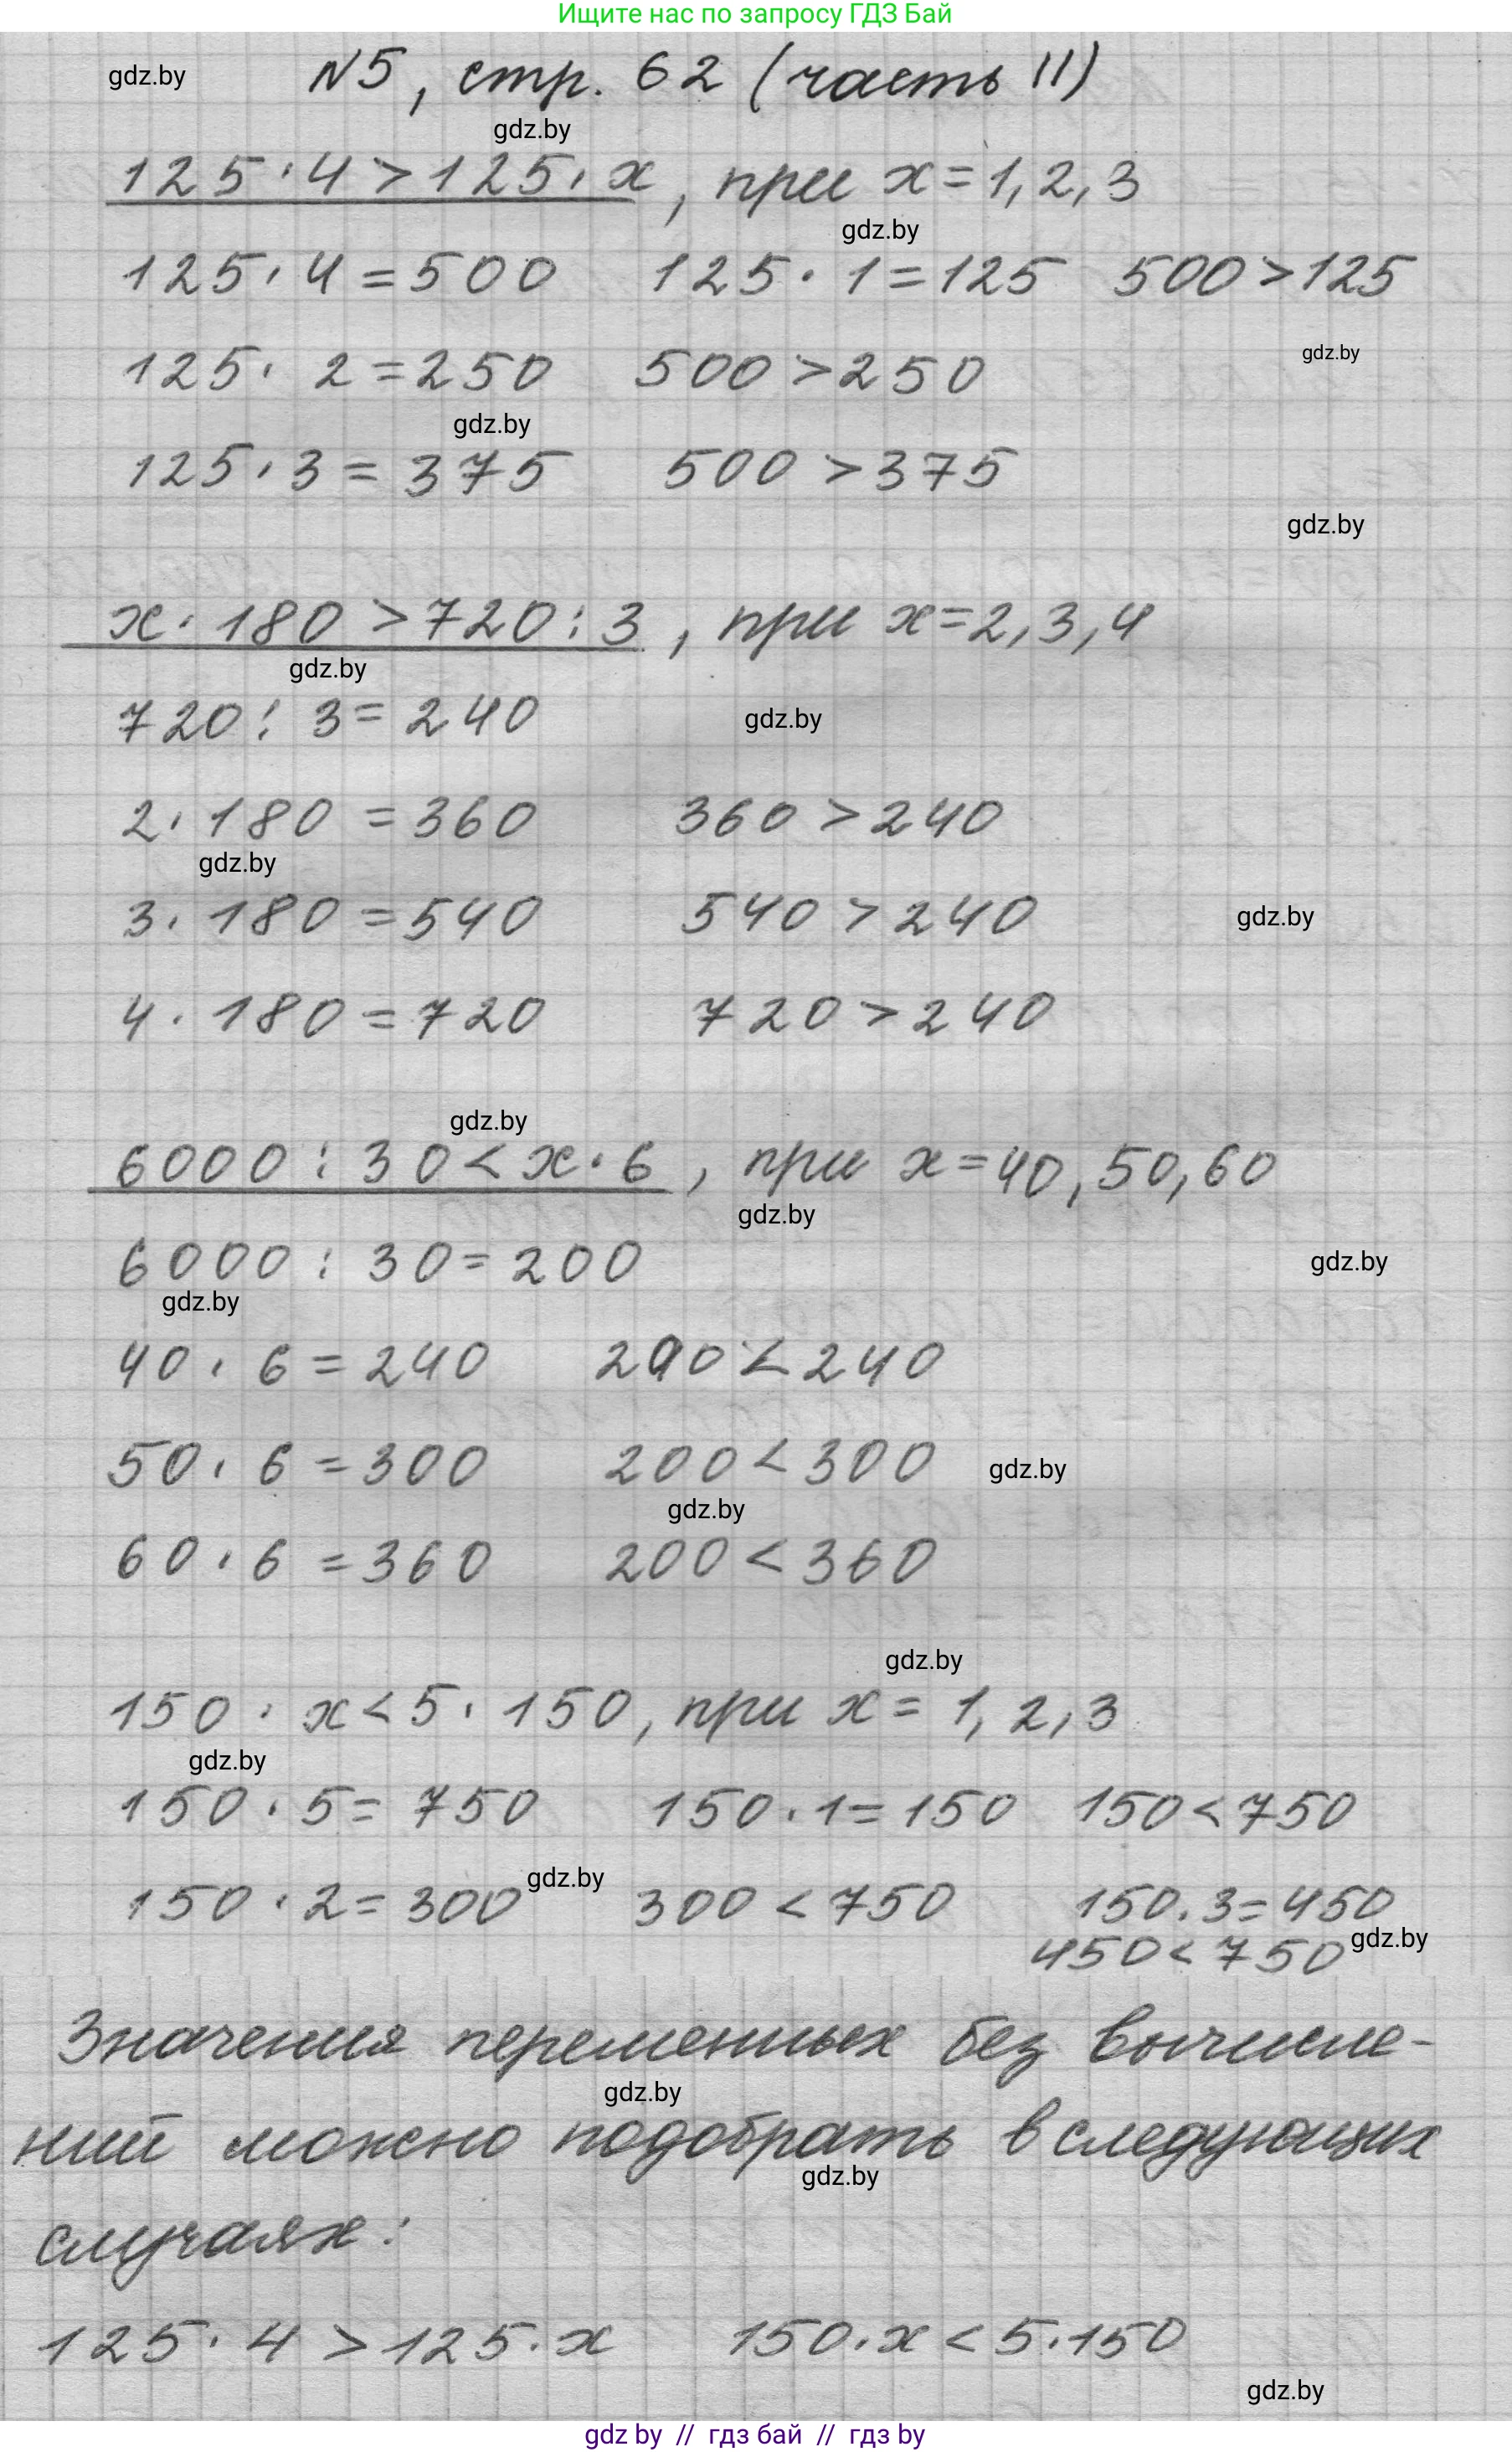 Ищите нас по запросу ГДЗ Бай
gdz.by
N5, стр. 62 (часть II)
gdz.by
125 · 4 > 125 · x, при x = 1, 2, 3
gdz.by
125 · 4 = 500 125 · 1 = 125 500 > 125
gdz.by
125 · 2 = 250 500 > 250
gdz.by
125 · 3 = 375 500 > 375
gdz.by
x · 180 > 720 : 3, при x = 2, 3, 4
gdz.by
720 : 3 = 240
gdz.by
2 · 180 = 360 360 > 240
gdz.by
3 · 180 = 540 540 > 240
gdz.by
4 · 180 = 720 720 > 240
gdz.by
6000 : 30 < x · 6, при x = 40, 50, 60
gdz.by
6000 : 30 = 200
gdz.by
gdz.by
40 · 6 = 240 200 < 240
50 · 6 = 300 200 < 300
gdz.by
gdz.by
60 · 6 = 360 200 < 360
gdz.by
150 · x < 5 · 150, при x = 1, 2, 3
gdz.by
150 · 5 = 750 150 · 1 = 150 150 < 750
gdz.by
150 · 2 = 300 300 < 750 150 · 3 = 450
450 < 750
gdz.by
Значения переменных без вычисле-
gdz.by
ний можно подобрать в следующих
gdz.by
случаях:
125 · 4 > 125 · x 150 · x < 5 · 150
gdz.by
gdz by // гдз бай // гдз by